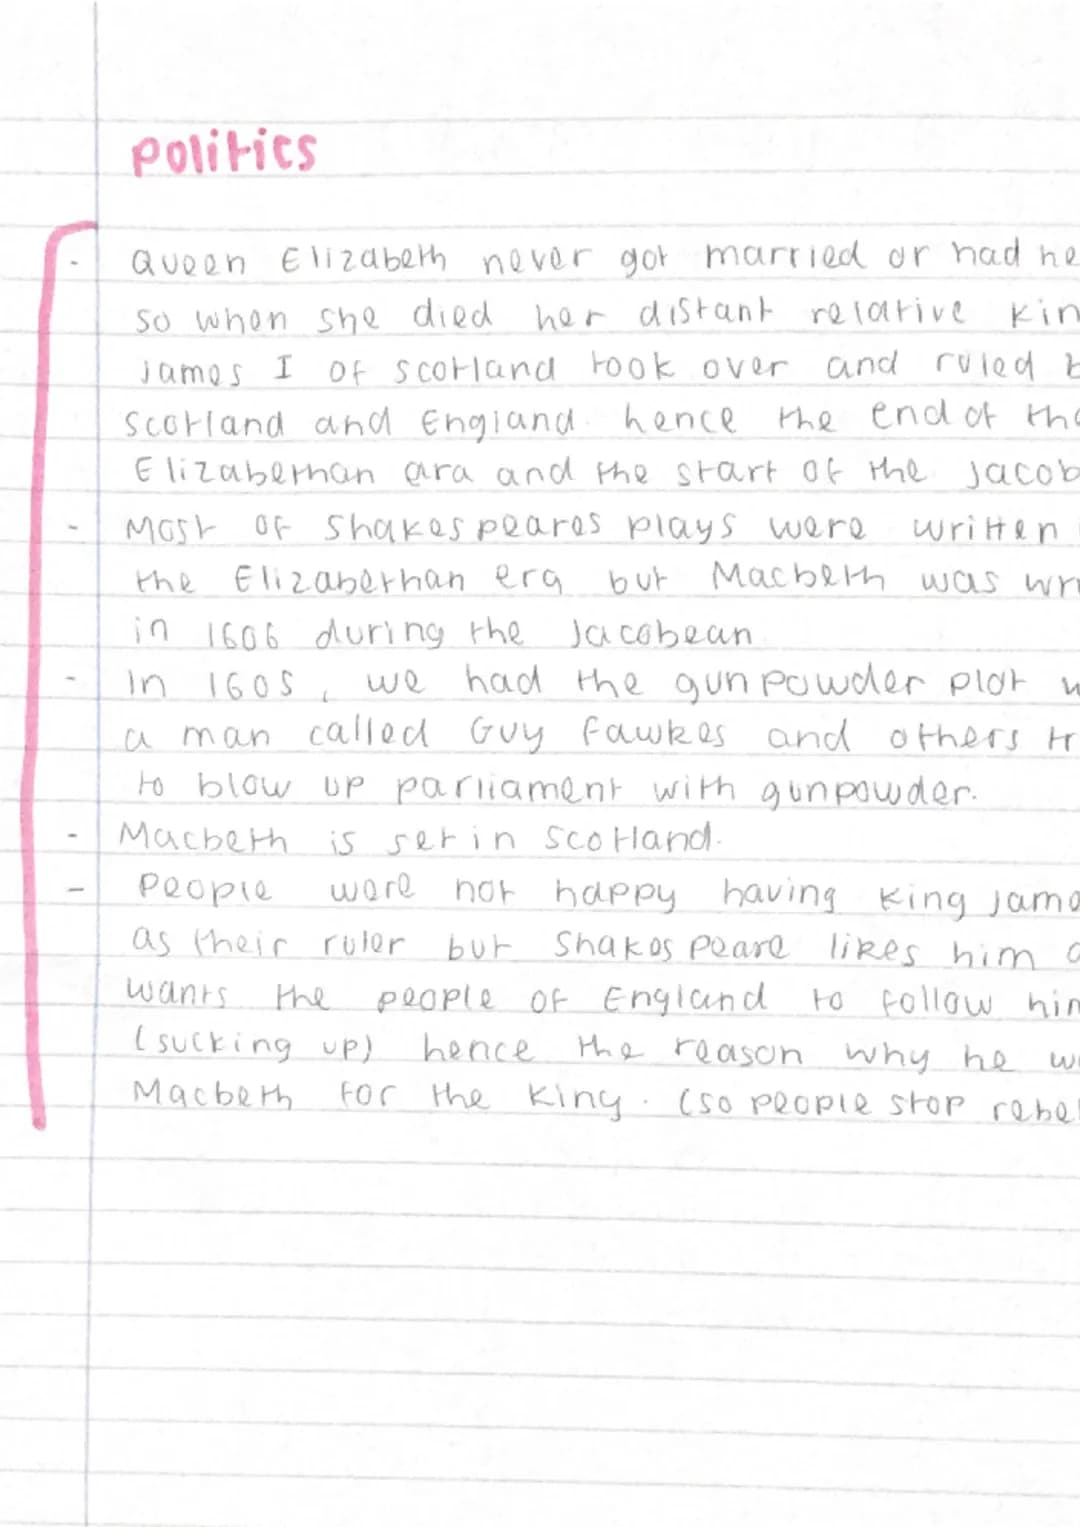 Politics
- Queen Elizabeth never got married or had he
so when she died her distant relative Kin
James I of scotland took over and ruled b
scotland and England. hence the end of the
Elizabethan ara and the start of the Jacob
- Most of Shakespeares plays were written
the Elizabethan era but Macbeth was wri
in 1606 during the Jacobean
- In 1605, we had the gunpowder plot w
a man called Guy Fawkes and others tr
to blow up parliament with gunpowder.
- Macbeth is set in Scotland.
- People were not happy having King Jame
as their ruler but Shakespeare likes him a
wants the people of England to follow him
(sucking up) hence the reason why he w
Macbeth for the King. (so people stop rebel